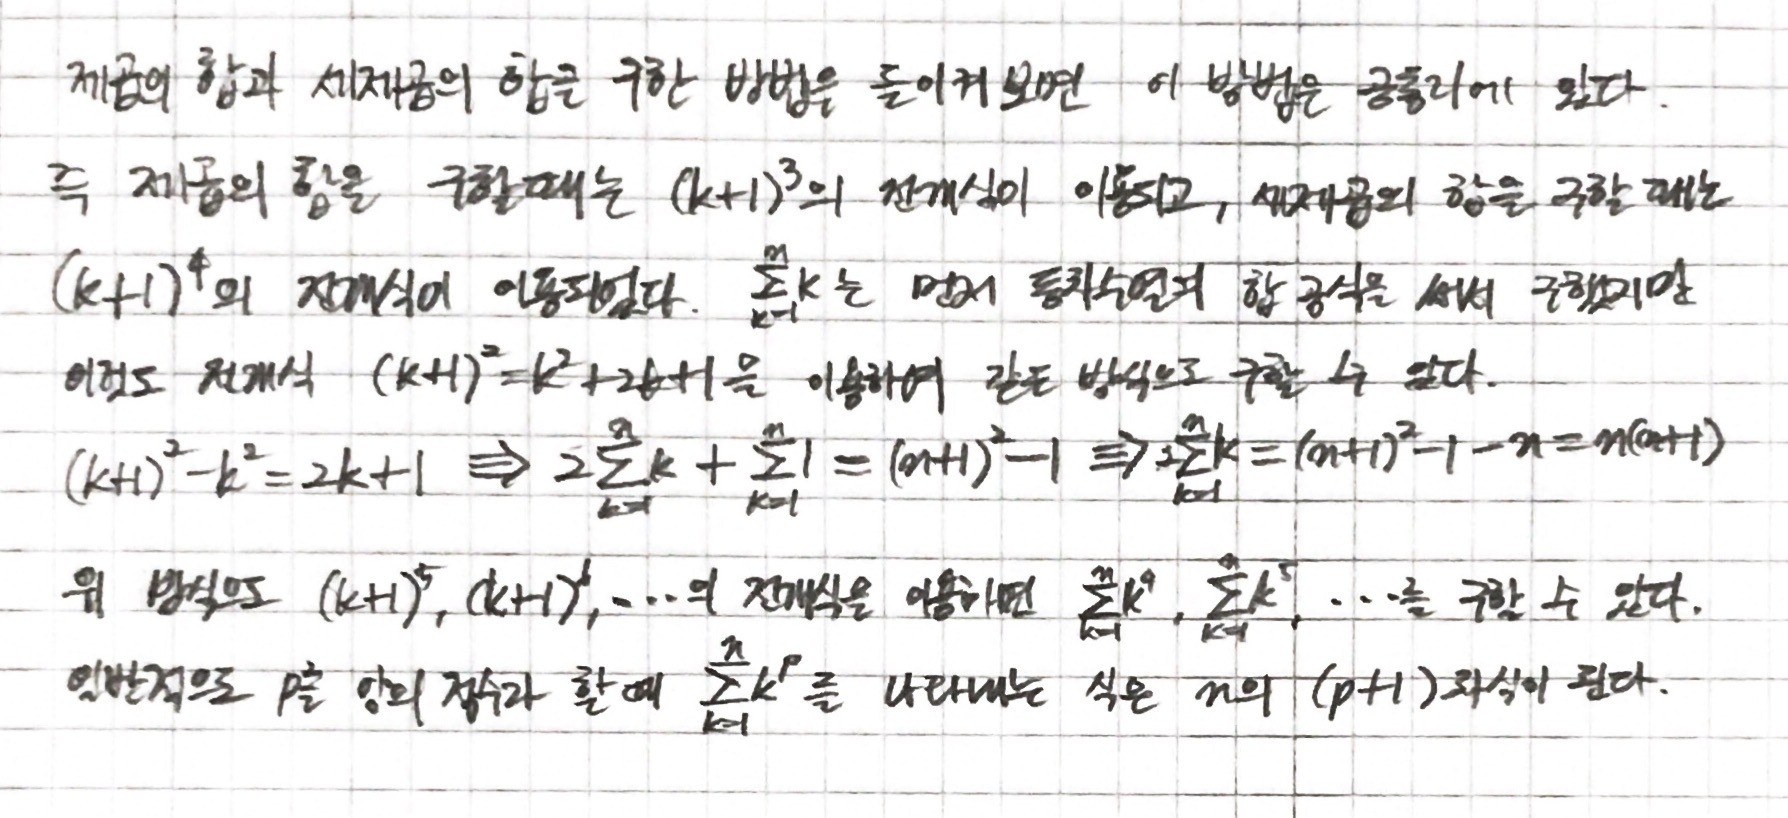 제곱의 합과 세제곱의 합을 구한 방법을 돌이켜 보면 이 방법은 공통점이 있다.
즉 제곱의 합을 구할때는 (k+1)³의 전개식이 이용되고, 세제곱의 합을 구할 때는
(k+1)⁴의 전개식이 이용되었다. \sum_{k=1}^{n} k 는 먼저 등차수열의 합 공식을 써서 구했지만
이것도 전개식 (k+1)²=k²+2k+1을 이용하여 같은 방식으로 구할 수 있다.
(k+1)²-k²=2k+1 ⇒ 2\sum_{k=1}^{n} k + \sum_{k=1}^{n} 1 = (n+1)²-1 ⇒ 2\sum_{k=1}^{n} k = (n+1)²-1-n = n(n+1)
위 방식으로 (k+1)⁵, (k+1)⁶, ...의 전개식을 이용하면 \sum_{k=1}^{n} k⁴, \sum_{k=1}^{n} k⁵, ...를 구할 수 있다.
일반적으로 p를 양의 정수라 할 때 \sum_{k=1}^{n} k^p 를 나타내는 식은 n의 (p+1)차식이 된다.